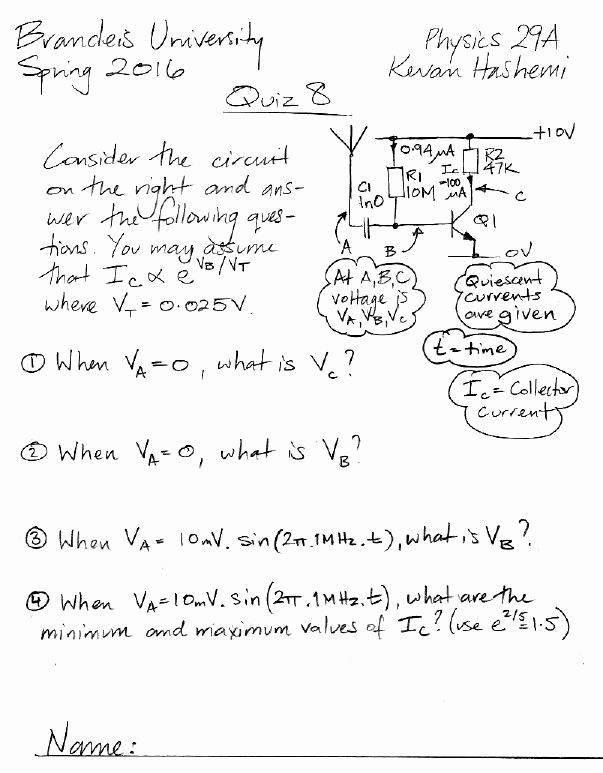 Brandeis University
Spring 2016
Physics 29A
Kevan Hashemi
Quiz 8
Consider the circuit
on the right and ans-
wer the following ques-
tions. You may assume
that Ic ∝ e^VB/VT
where VT = 0.025V
+10V
0.94µA
R1
10M
Ic
~100
µA
R2
47K
C
C1
1n0
Q1
A
B
0V
At A,B,C
voltage is
VA,VB,Vc
Quiescent
currents
are given
t = time
Ic = Collector
Current
① When VA = 0, what is Vc?
② When VA = 0, what is VB?
③ When VA = 10mV. sin(2π.1MHz.t), what is VB?
④ When VA = 10mV. sin(2π.1MHz.t), what are the
minimum and maximum values of Ic? (use e^2/5 = 1.5)
Name: